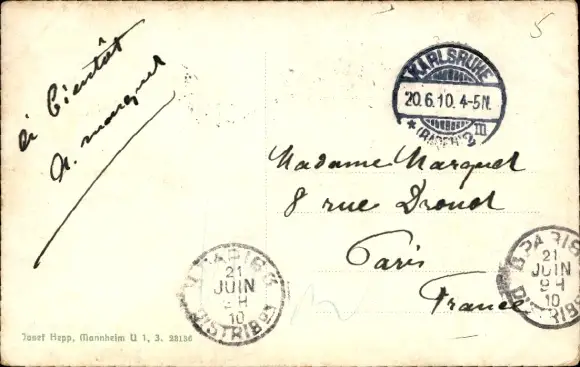 5
à bientôt
N. Marquet
KARLSRUHE
20.6.10. 4-5N.
* (BADEN) 2 III
Madame Marquet
8 rue Drouot
Paris
France
PARIS
21
JUIN
9H
10
DISTRIBON
PARIS
21
JUIN
9H
10
DISTRIBON
Josef Hepp, Mannheim U 1, 3. 22136